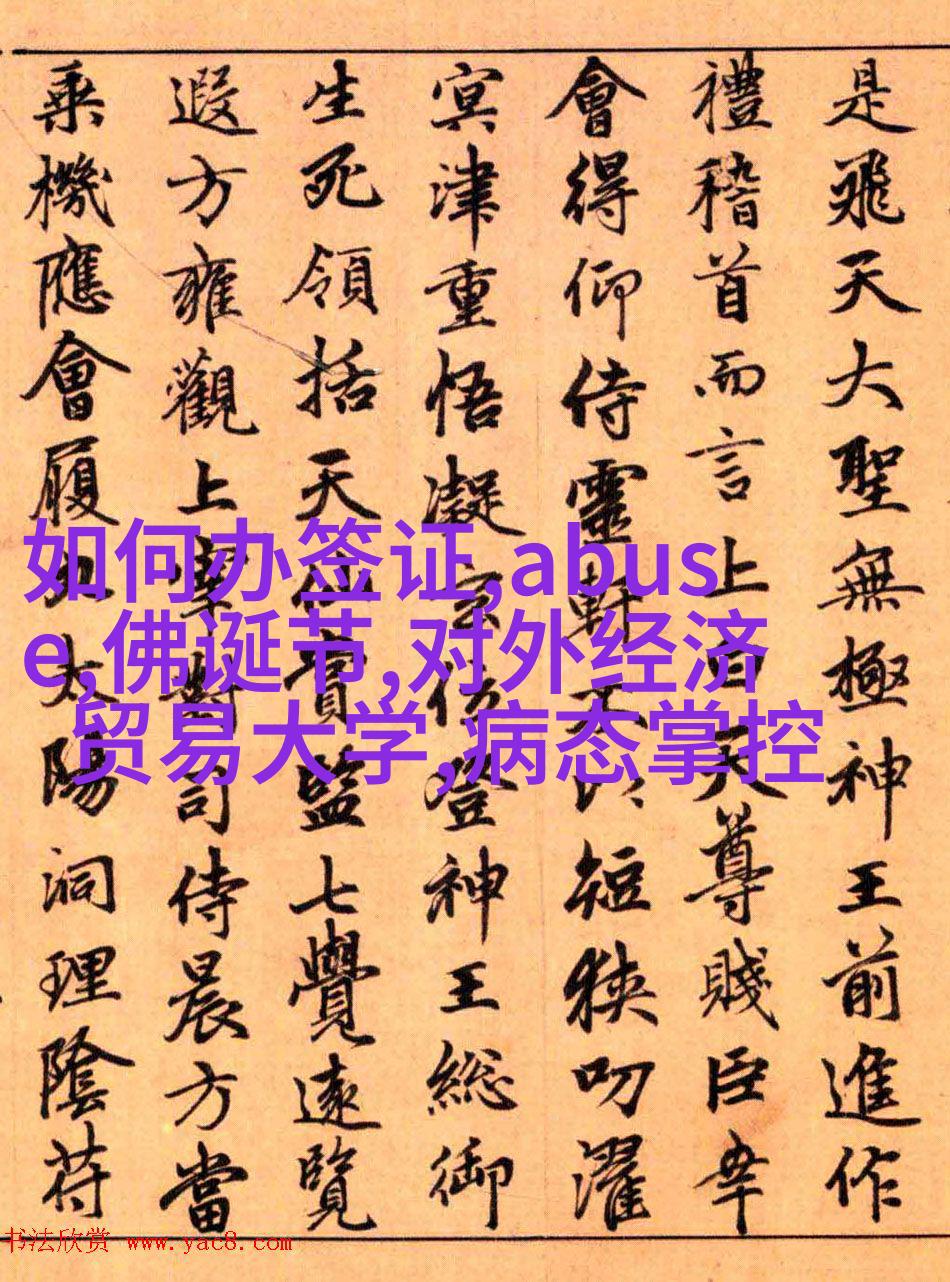 是飛天大聖無極神王前進作
禮稽首而言上白天尊賤臣幸
會得仰侍靈軒不短狹叨濯
冥津重悟凝登神王総御
生死領括天監七覺遠覽
遐方雍觀上司侍晨方當
乗機應會履太陽洞理陰苻
如何办签证,abus
e,佛诞节,对外经济
贸易大学,病态掌控
书法欣赏 www.yac8.com